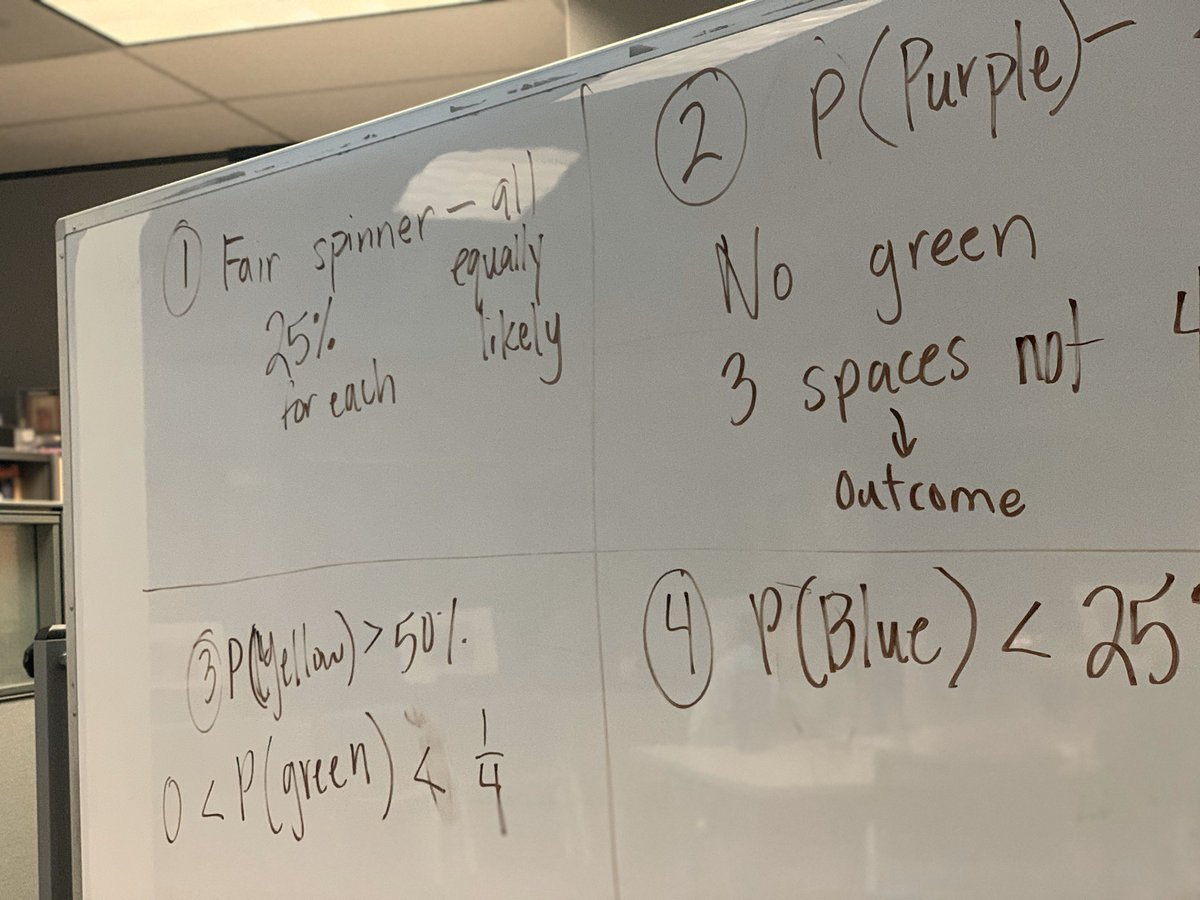 ① Fair spinner – all
equally
likely
25%
for each
② P(Purple) –
No green
3 spaces not 4
↓
Outcome
③ P(Yellow) > 50%
0 < P(green) < 1/4
④ P(Blue) < 25